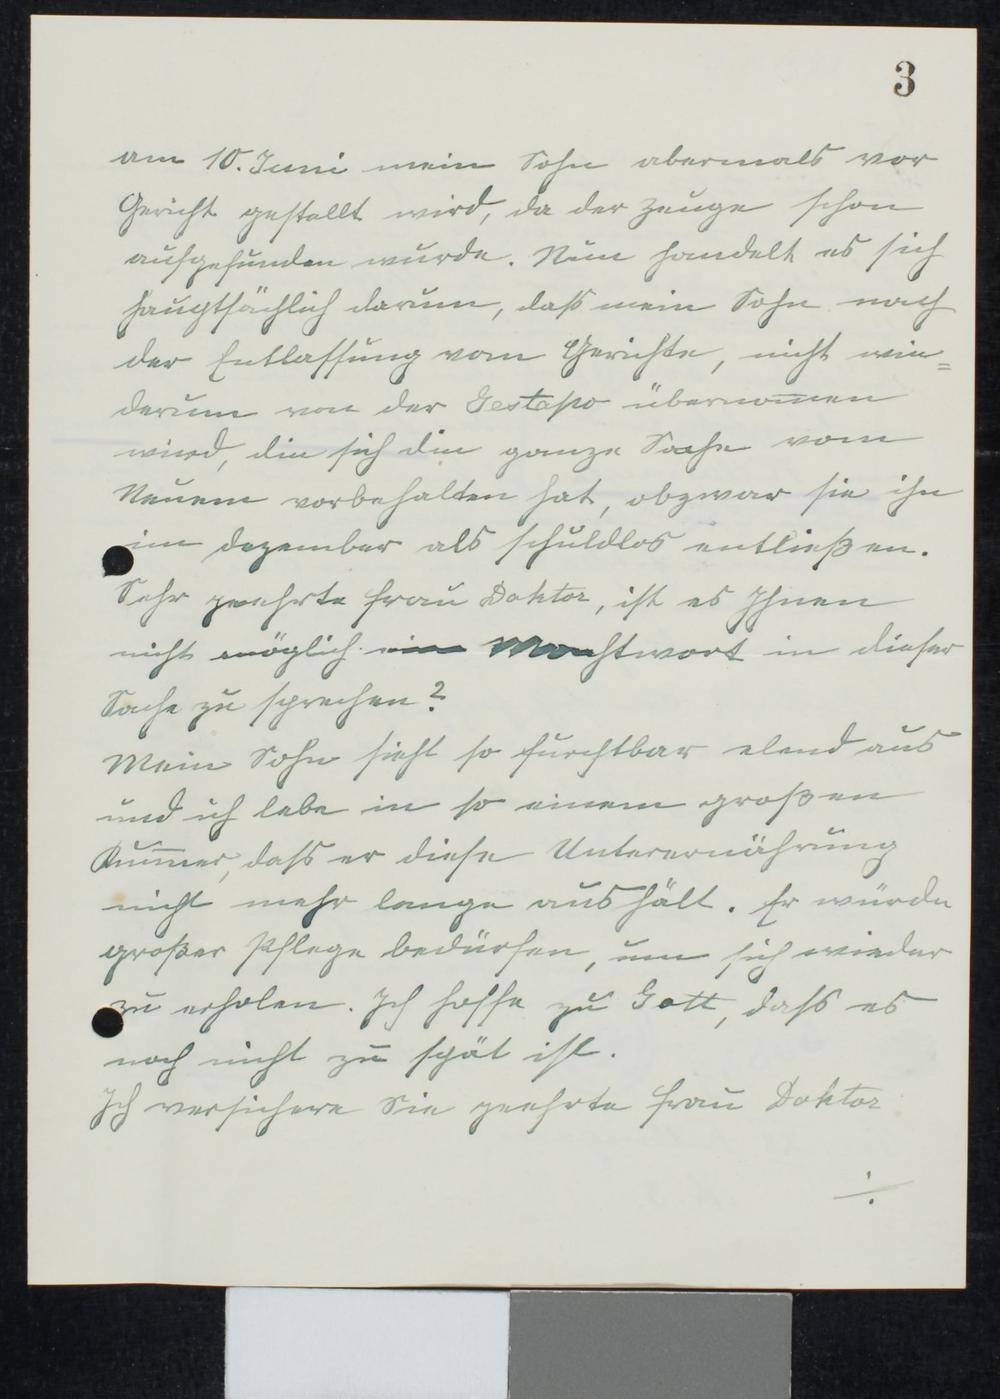 3
am 10. Juni mein Sohn abermals vor
Gericht gestellt wird, da der Zeuge schon
aufgefunden wurde. Nun handelt es sich
hauptsächlich darum, daß mein Sohn nach
der Entlassung vom Gerichte, nicht wie=
derum von der Gestapo übernom̅en
wird, die sich die ganze Sache vom
Neuem vorbehalten hat, obzwar sie ihn
im Dezember als schuldlos entließen.
Sehr geehrte Frau Doktor, ist es Ihnen
nicht möglich ein Machtwort in dieser
Sache zu sprechen?
Mein Sohn sieht so furchtbar elend aus
und ich lebe in so einem großen
Kum̅er, dass er diese Unterernährung
nicht mehr lange aushält. Er würde
großer Pflege bedürfen, um sich wieder
zu erholen. Ich hoffe zu Gott, dass es
noch nicht zu spät ist.
Ich versichere Sie geehrte Frau Doktor
./.